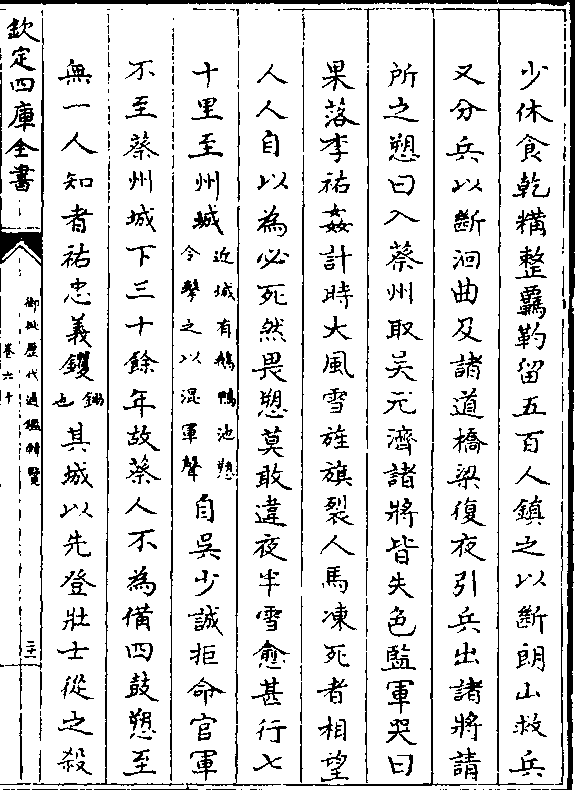 少休食乾糒整羈靮留五百人鎮之以斷朗山救兵
又分兵以斷洄曲及諸道橋梁復夜引兵出諸將請
所之愬曰入蔡州取吳元濟諸將皆失色監軍哭曰
果落李祐姦計時大風雪旌旗裂人馬凍死者相望
人人自以為必死然畏愬莫敢違夜半雪愈甚行七
十里至州城近城有鵝鴨池愬令擊之以混軍聲自吳少誠拒命官軍
不至蔡州城下三十餘年故蔡人不為備四鼓愬至
無一人知者祐忠義钁鋤也其城以先登壯士從之殺
欽定四庫全書
御批歷代通鑑輯覽
卷六十
二十一